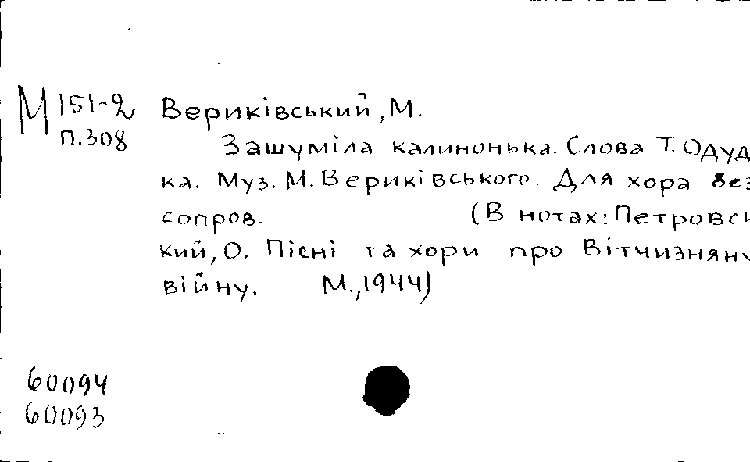 М 151-2 Вериківський, М.
п.308
Зашуміла калинонька. Слова Т. Одуд
ка. Муз. М. Вериківського. Для хора без
сопров. (В нотах: Петровсь
кий, О. Пісні та хори про Вітчизняну
війну. М., 1944)
60094
60093